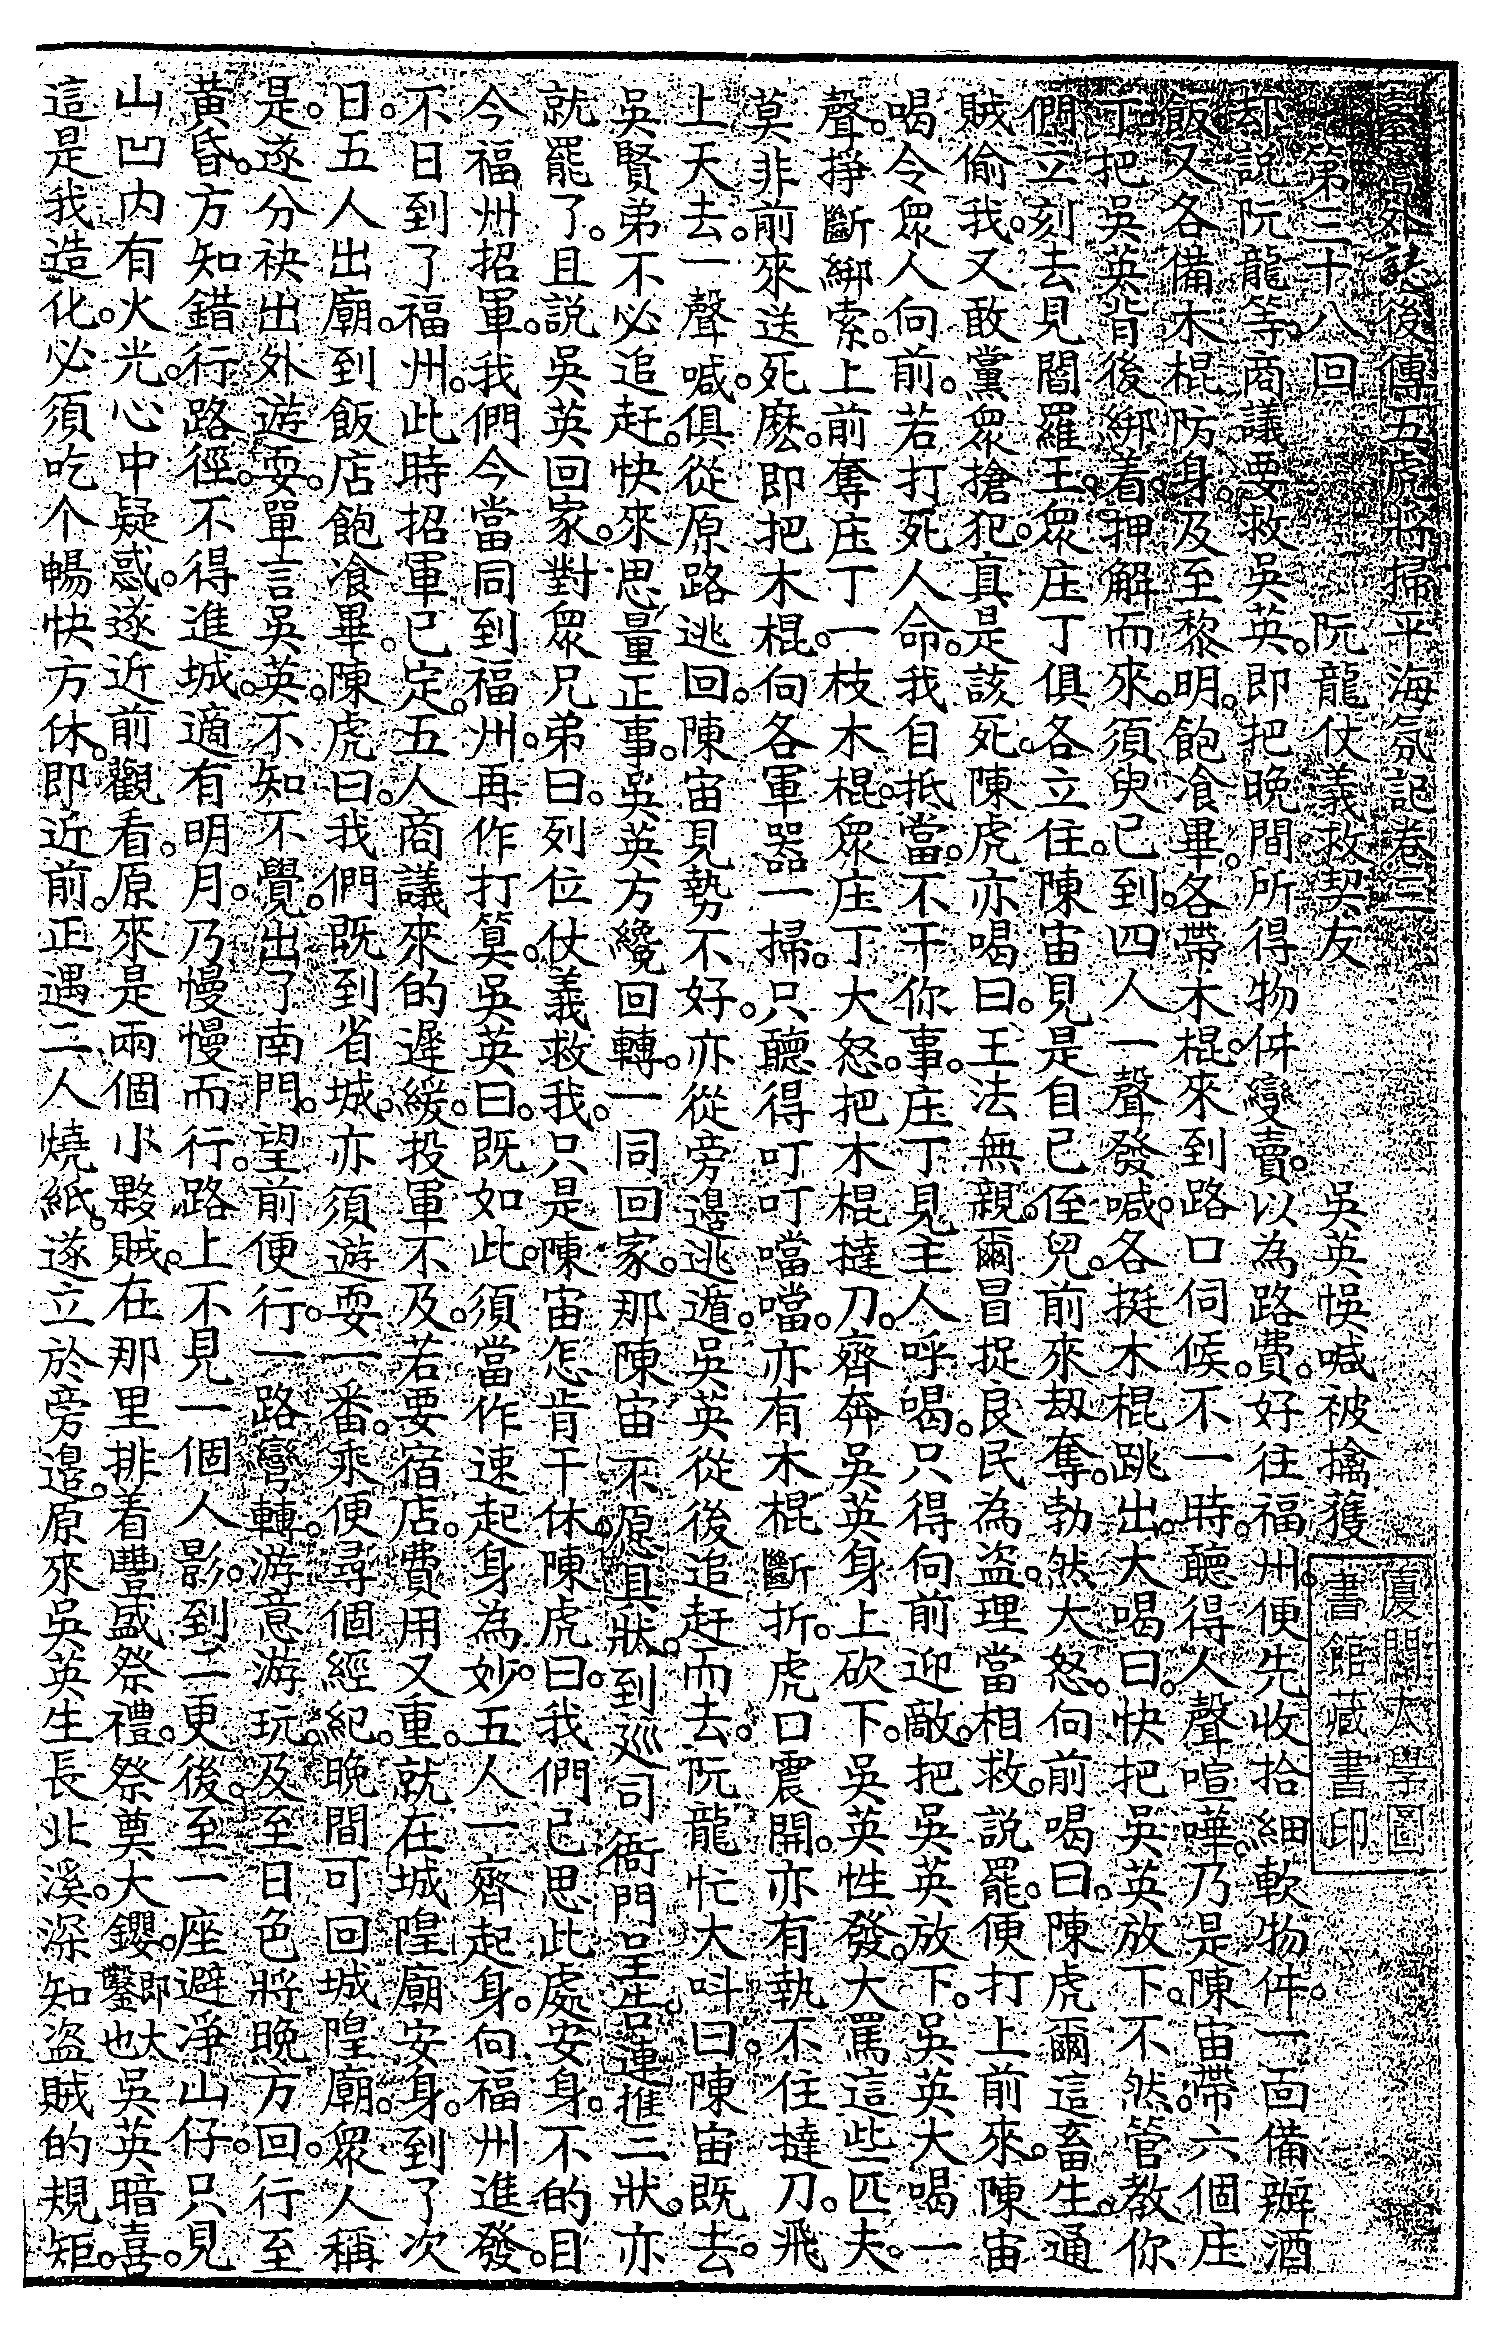 臺灣外誌後傳五虎將掃平海氛記卷三
第三十八回　阮龍仗義救契友　吳英悞喊被擒獲
却説阮龍等商議要救吳英即把晚間所得物件變賣以為路費好往福州便先收拾細軟物件一面備辦酒
飯又各備木棍防身及至黎明飽飡畢各帶木棍來到路口伺候不一時聽得人聲喧嘩乃是陳宙帶六個庄
丁把吳英背後綁着押解而來須臾已到四人一聲發喊各挺木棍跳出大喝曰快把吳英放下不然管教你
們立刻去見閻羅王眾庄丁俱各立住陳宙見是自己侄兒前來刼奪勃然大怒向前喝曰陳虎爾這畜生通
賊偷我又敢黨眾搶犯真是該死陳虎亦喝曰王法無親爾冒捉良民為盜理當相救説罷便打上前來陳宙
喝令眾人向前若打死人命我自抵當不干你事庄丁見主人呼喝只得向前迎敵把吳英放下吳英大喝一
聲掙斷綁索上前奪庄丁一枝木棍眾庄丁大怒把木棍撻刀齊奔吳英身上砍下吳英性發大罵這些匹夫
莫非前來送死麽即把木棍向各軍器一掃只聽得叮叮噹噹亦有木棍斷折虎口震開亦有執不住撻刀飛
上天去一聲喊俱從原路逃回陳宙見勢不好亦從旁邊逃遁吳英從後追赶而去阮龍忙大呌曰陳宙既去
吳賢弟不必追赶快來思量正事吳英方纔回轉一同回家那陳宙不愿具狀到廵司衙門呈告連進三狀亦
就罷了且説吳英回家對眾兄弟曰列位仗義救我只是陳宙怎肯干休陳虎曰我們已思此處安身不的目
今福州招軍我們今當同到福州再作打算吳英曰既如此須當作速起身為妙五人一齊起身向福州進發
不日到了福州此時招軍已定五人商議來的遲緩投軍不及若要宿店費用又重就在城隍廟安身到了次
日五人出廟到飯店飽飡畢陳虎曰我們既到省城亦須遊耍一番乘便尋個經紀晚間可回城隍廟眾人稱
是遂分袂出外遊耍單言吳英不知不覺出了南門望前便行一路彎轉游意游玩及至日色將晚方回行至
黃昏方知錯行路徑不得進城適有明月乃慢慢而行路上不見一個人影到二更後至一座避淨山仔只見
山凹内有火光心中疑惑遂近前觀看原來是兩個小夥賊在那里排着豐盛祭禮祭奠大鑼即大鑿也吳英暗喜
這是我造化必須吃个暢快方休即近前正遇二人燒紙遂立於旁邊原來吳英生長北溪深知盜賊的規矩
廈門大學圖
書館藏書印